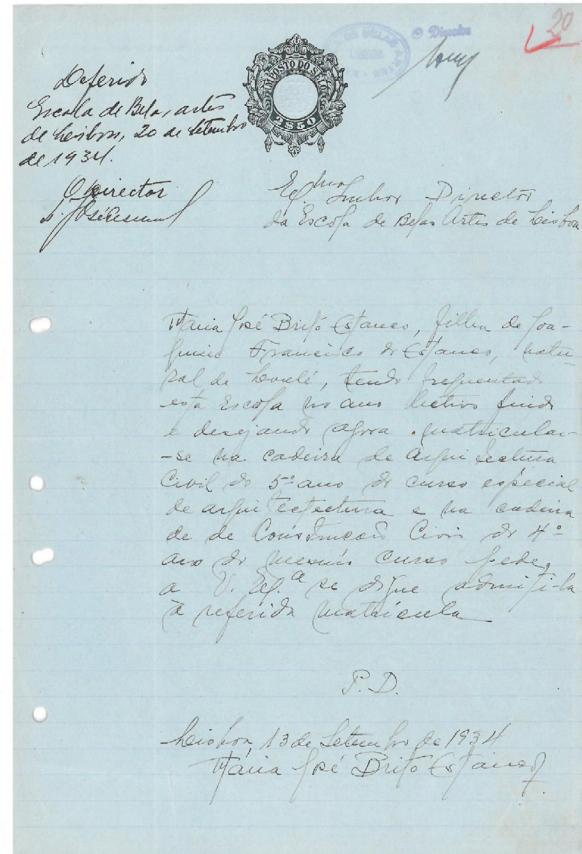 20
O Director
IMPOSTO DO SELO
2$50
Deferido
Escola de Belas artes
de Lisboa, 20 de Setembro
de 1934.
O Director
Exmo Senhor Director
da Escola de Belas Artes de Lisboa
Maria José Brito Estanco, filha de Joa-
quim Francisco d'Estanco, natu-
ral de Loulé, tendo frequentado
esta Escola no ano lectivo findo
e desejando agora matricular-
-se na cadeira de Arquitectura
Civil do 5º ano do curso especial
de arquitectura e na cadeira
de de Construção Civil do 4º
ano do mesmo curso pede
a V. Ex.ª se digne admiti-la
à referida matrícula
P.D.
Lisboa, 13 de Setembro de 1934
Maria José Brito Estanco